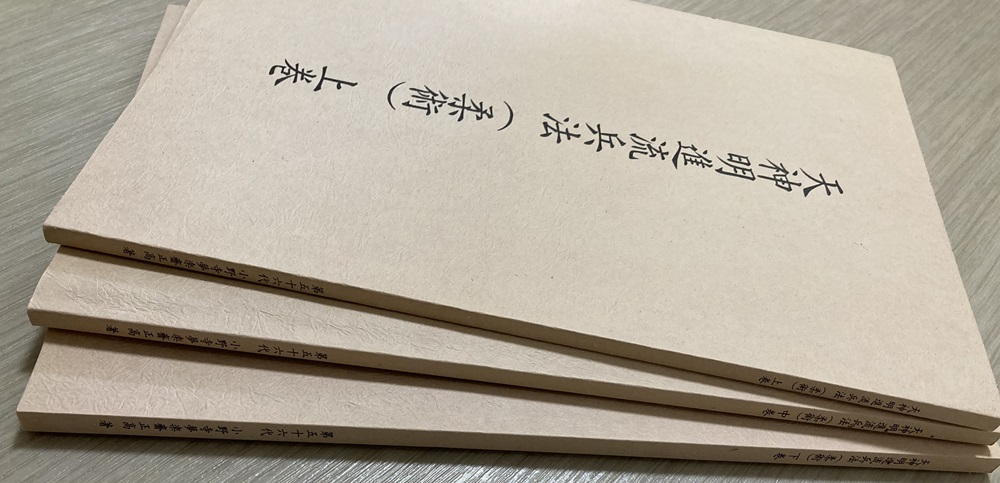 天神明進流兵法（柔術）上巻
天神明進流兵法（柔術）上巻 第五十六代 小野寺夢楽齋正高著
天神明進流兵法（柔術）中巻 第五十六代 小野寺夢楽齋正高著
天神明進流兵法（柔術）下巻 第五十六代 小野寺夢楽齋正高著